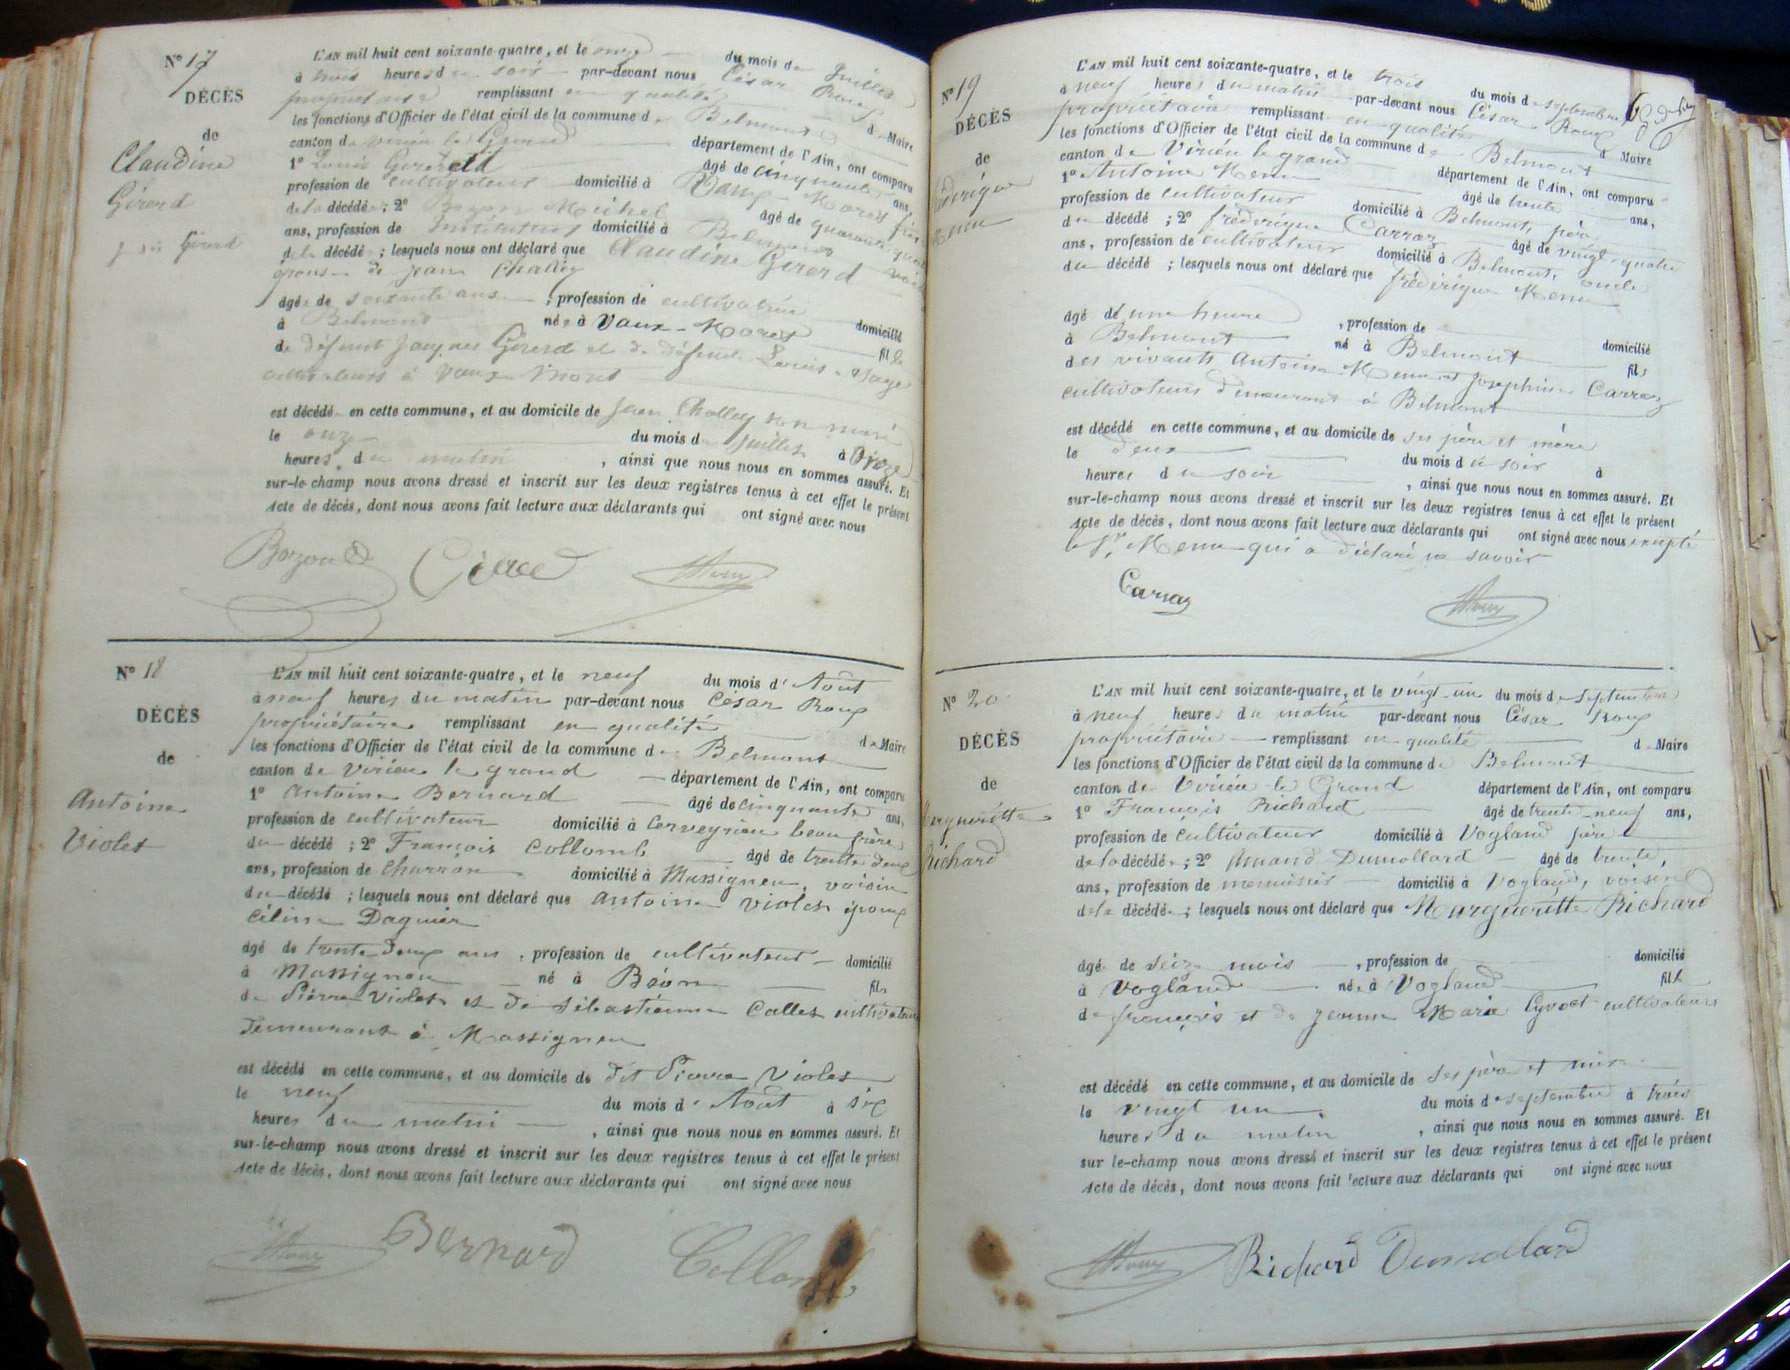 N° 17
DÉCÈS
de
Claudine
Gérerd
L'AN mil huit cent soixante-quatre, et le onze du mois de Juillet
à trois heures du soir par-devant nous César Roux
propriétaire remplissant en qualité de Maire
les fonctions d'Officier de l'état civil de la commune de Belmont
canton de virieu le Grand département de l'Ain, ont comparu
1° Louis Gérerd âgé de cinquante ans,
profession de cultivateur domicilié à Vaux Morets frère
de la décédée ; 2° Michel âgé de quarante quatre
ans, profession de Instituteur domicilié à Belmont voisin
de la décédée ; lesquels nous ont déclaré que Claudine Gérerd
épouse de Jean Challey
âgée de soixante ans , profession de cultivatrice domicilié
à Belmont née à Vaux-Morets fille
de défunt Jacques Gérerd et de défunte
cultivateurs à Vaux Morets
est décédée en cette commune, et au domicile de Jean Challey son mari
le onze du mois de Juillet à onze
heures du matin , ainsi que nous nous en sommes assuré. Et
sur-le-champ nous avons dressé et inscrit sur les deux registres tenus à cet effet le présent
Acte de décès, dont nous avons fait lecture aux déclarants qui ont signé avec nous
N° 18
DÉCÈS
de
Antoine
Violet
L'AN mil huit cent soixante-quatre, et le neuf du mois d'Août
à neuf heures du matin par-devant nous César Roux
propriétaire remplissant en qualité de Maire
les fonctions d'Officier de l'état civil de la commune de Belmont
canton de Virieu le grand département de l'Ain, ont comparu
1° Antoine Bernard âgé de cinquante ans,
profession de cultivateur domicilié à Cerveyrieu beau frère
du décédé ; 2° François Collomb âgé de trente deux
ans, profession de Charron domicilié à Massignieu, voisin
du décédé ; lesquels nous ont déclaré que Antoine Violet époux
Céline Dagnier
âgé de trente deux ans , profession de cultivateur domicilié
à Massignieu né à Béon fils
de Pierre Violet et de Sébastienne Callet cultivateurs
demeurant à Massignieu
est décédé en cette commune, et au domicile de dit Pierre Violet
le neuf du mois d'Août à six
heures du matin , ainsi que nous nous en sommes assuré. Et
sur-le-champ nous avons dressé et inscrit sur les deux registres tenus à cet effet le présent
Acte de décès, dont nous avons fait lecture aux déclarants qui ont signé avec nous
Bernard Collomb
N° 19
DÉCÈS
de
L'AN mil huit cent soixante-quatre, et le trois du mois de septembre
à neuf heures du matin par-devant nous César Roux
propriétaire remplissant en qualité de Maire
les fonctions d'Officier de l'état civil de la commune de Belmont
canton de Virieu le grand département de l'Ain, ont comparu
1° Antoine Menu âgé de trente ans,
profession de cultivateur domicilié à Belmont, père
du décédé ; 2° frédérique Carraz âgé de vingt-quatre
ans, profession de cultivateur domicilié à Belmont, oncle
du décédé ; lesquels nous ont déclaré que frédérique Menu
âgé de une heure , profession de
à Belmont né à Belmont domicilié
des vivants Antoine Menu et Joséphine Carraz fils
cultivateurs demeurant à Belmont
est décédé en cette commune, et au domicile de ses père et mère
le deux du mois du soir à
heures du soir , ainsi que nous nous en sommes assuré. Et
sur-le-champ nous avons dressé et inscrit sur les deux registres tenus à cet effet le présent
Acte de décès, dont nous avons fait lecture aux déclarants qui ont signé avec nous excepté
le Sr Menu qui a déclaré ne savoir
Carraz
N° 20
DÉCÈS
de
L'AN mil huit cent soixante-quatre, et le vingt-un du mois de Septembre
à neuf heures du matin par-devant nous César Roux
propriétaire remplissant en qualité de Maire
les fonctions d'Officier de l'état civil de la commune de Belmont
canton de Virieu le Grand département de l'Ain, ont comparu
1° François Richard âgé de trente-neuf ans,
profession de cultivateur domicilié à Vogland père
de la décédée ; 2° Amand Dumollard âgé de trente,
ans, profession de menuisier domicilié à Vogland, voisin
de la décédée ; lesquels nous ont déclaré que Margueritte Richard
âgée de seize mois , profession de domicilié
à Vogland née à Vogland fille
de françois et de Jeanne Marie Cyvoct cultivateurs
est décédé en cette commune, et au domicile de ses père et mère
le vingt un du mois de septembre à trois
heures du matin , ainsi que nous nous en sommes assuré. Et
sur le-champ nous avons dressé et inscrit sur les deux registres tenus à cet effet le présent
Acte de décès, dont nous avons fait lecture aux déclarants qui ont signé avec nous
Richard Dumollard